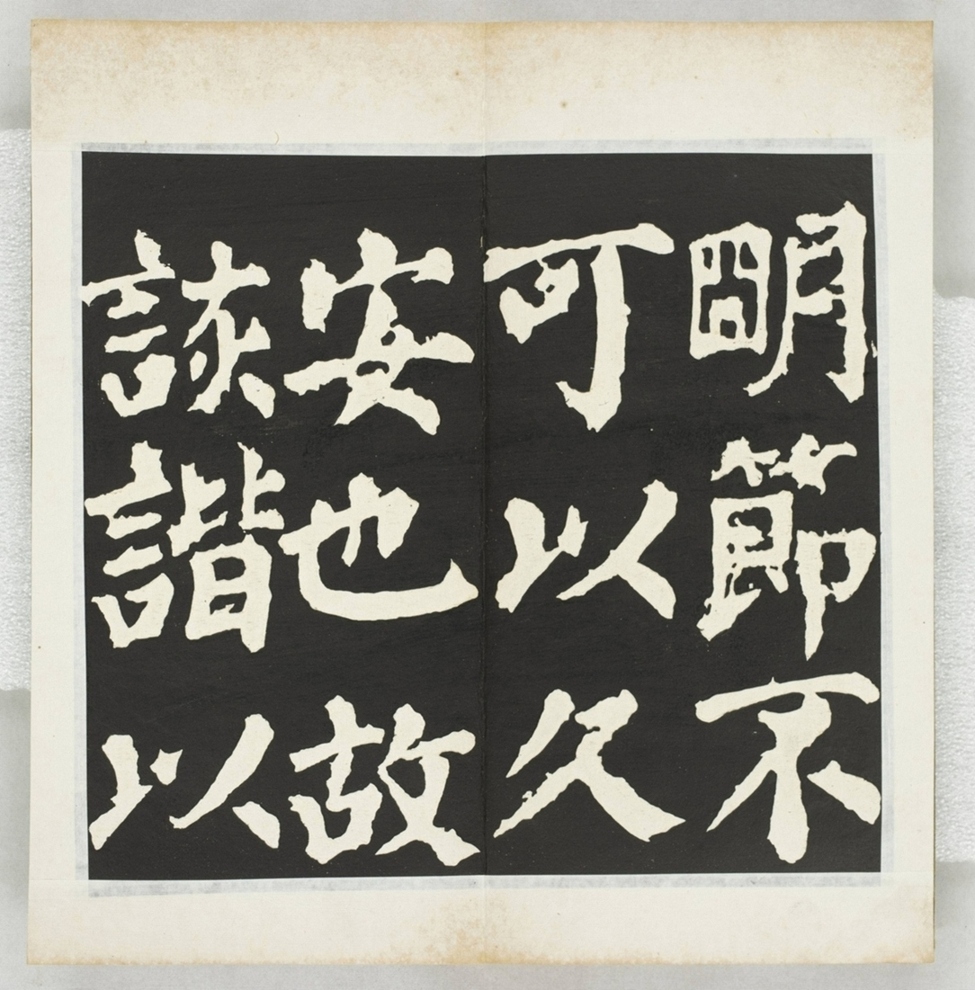 明節不
可以久
安也故
詼諧以